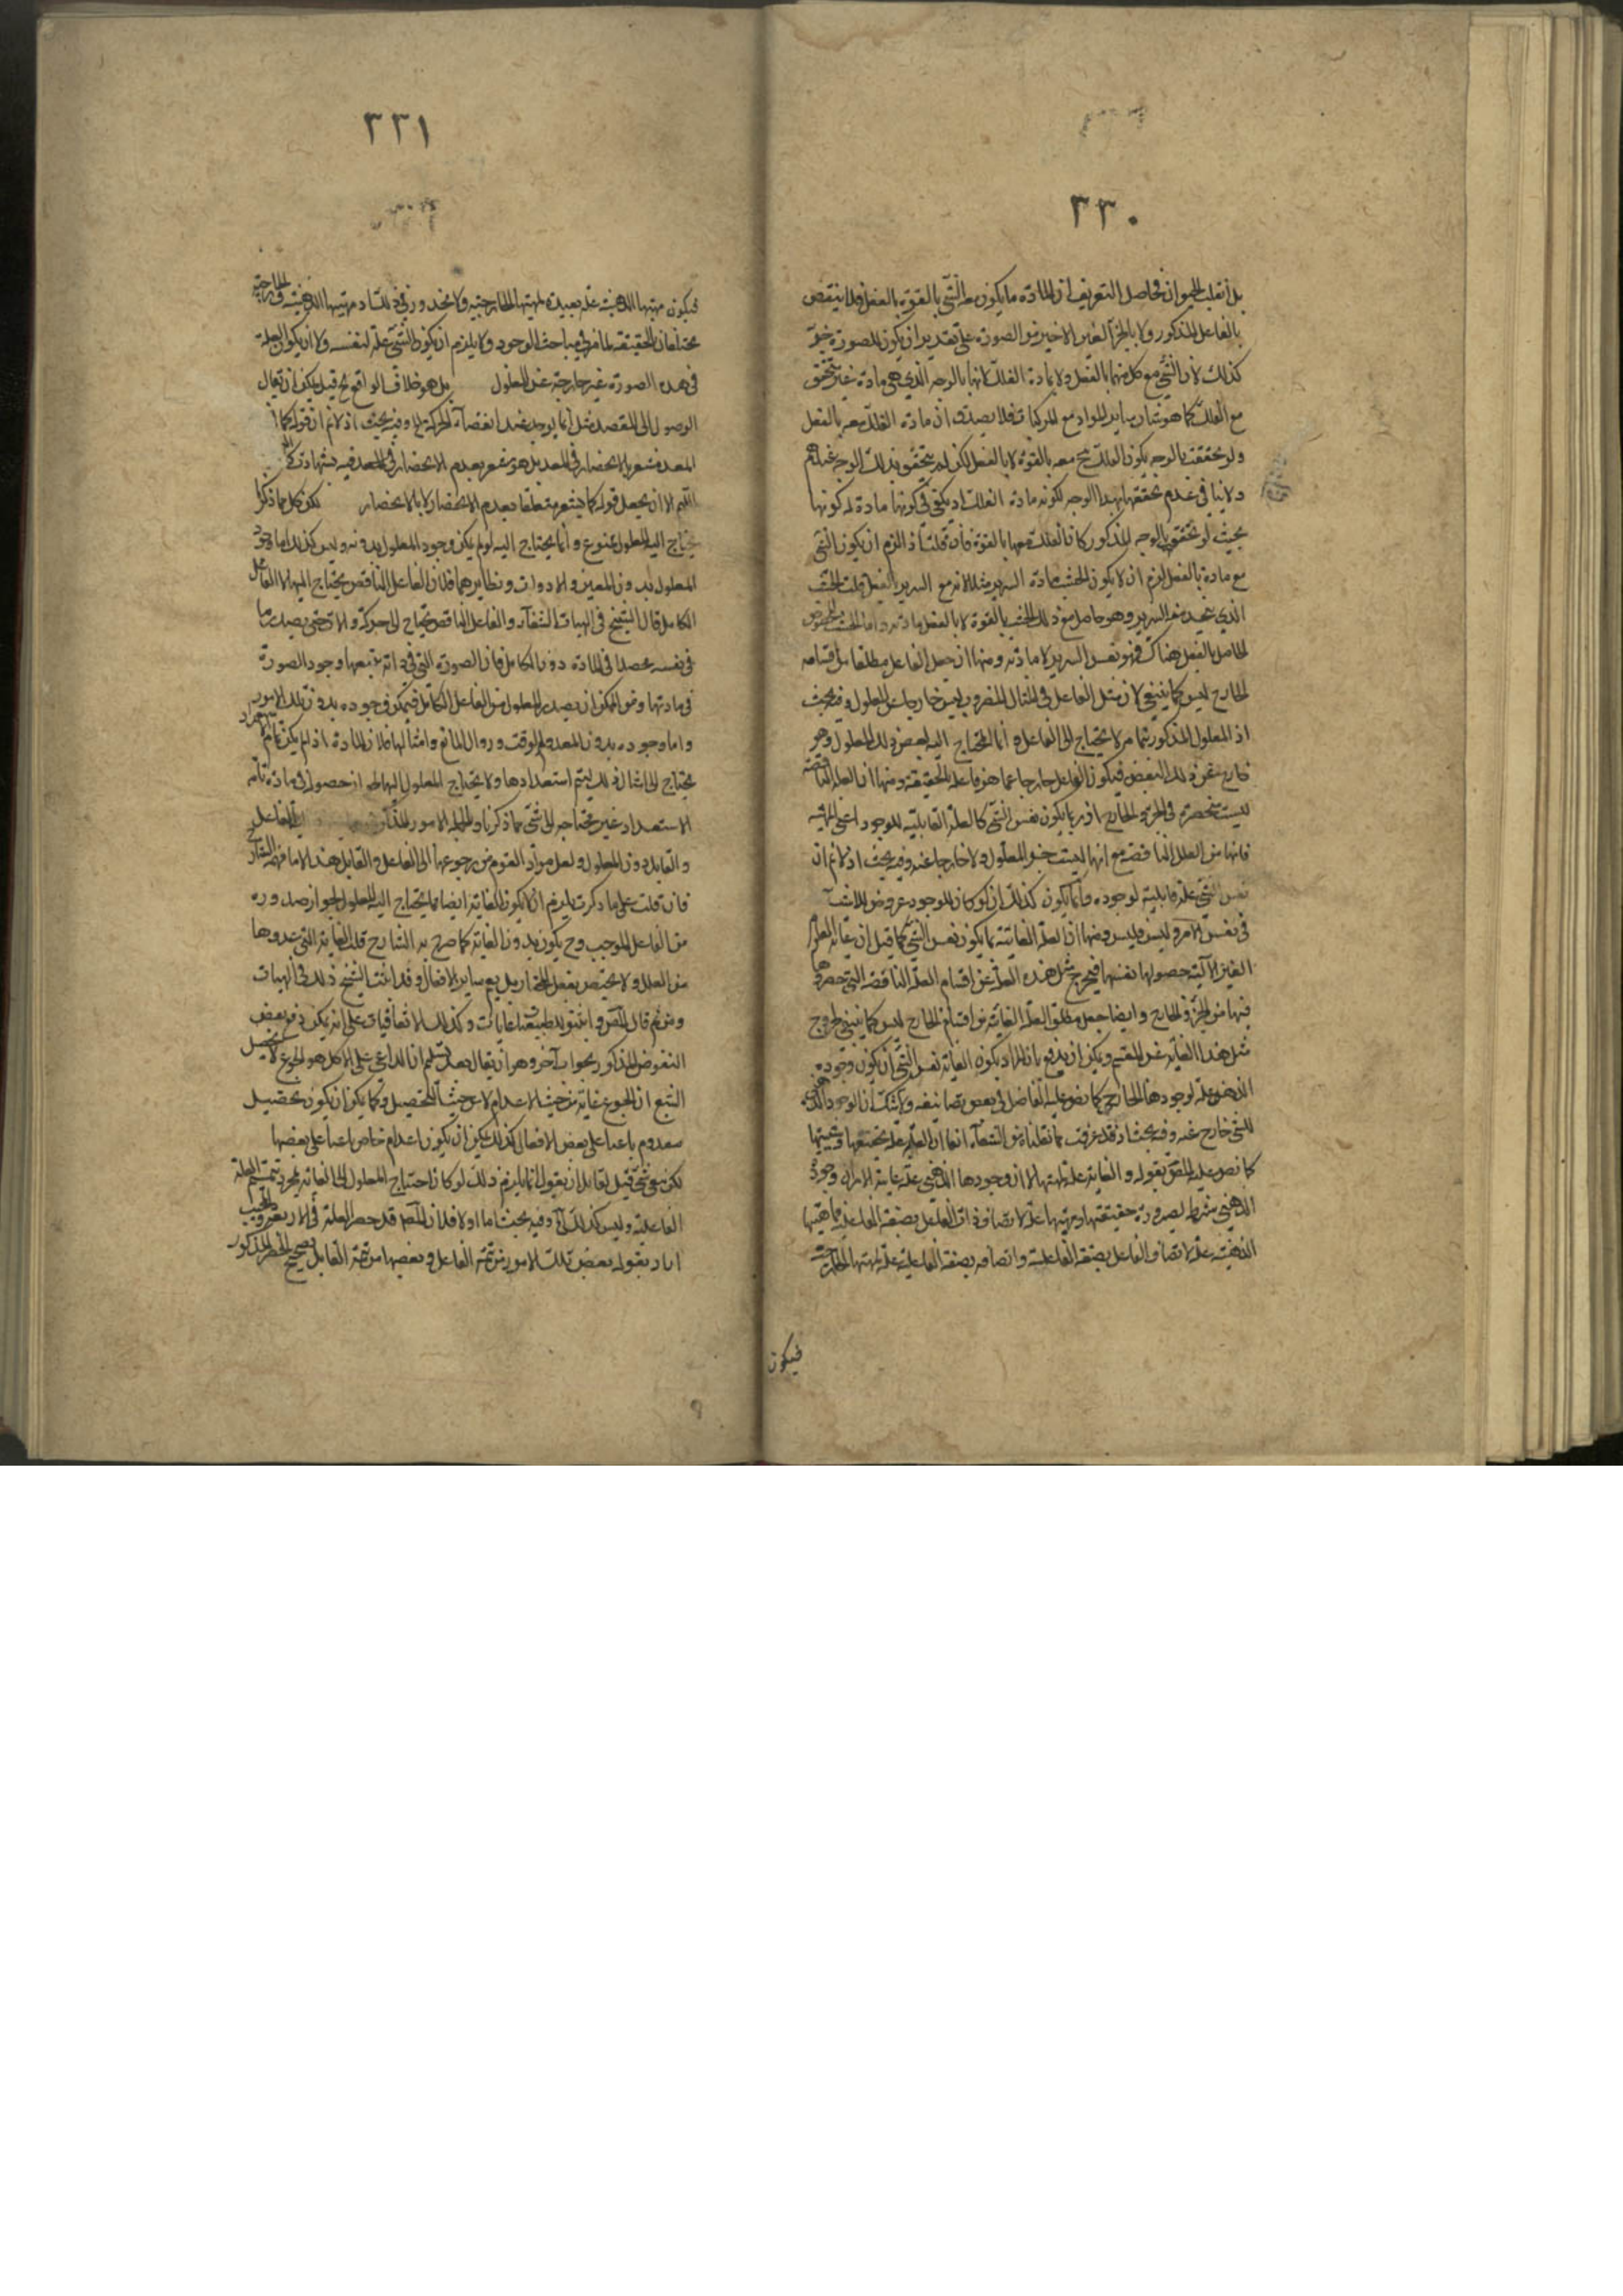 ٣٣٠
بل انقلب الحيوان فحاصل التعريف ان المادة ما يكون معه الشئ بالقوة لا بالفعل فلا ينتقض
بالفاعل المذكور ولا بالجزء الغير الاخير من الصورة على تقدير ان يكون للصورة جزء
كذلك لان الشئ مع كل منهما بالفعل ولا بمادة الفلك لانها بالوجه الذي هي مادة غير متحقق
مع الفلك كما هو شان ساير المواد مع المركبات فلا يصدق ان مادة الفلك معه بالفعل
ولو تحققت بالوجه يكون الفلك ح معه بالقوة لا بالفعل لكن لم يتحقق بذلك الوجه
ولا ينافي عدم تحققها بهذا الوجه لكونه مادة الفلك اذ يكفي في كونها مادة له كونها
بحيث لو تحقق بالوجه المذكور كان الفلك معها بالقوة فان قلت اذ الزم ان يكون الشئ
مع مادة بالفعل لزم ان لا يكون الخشب مادة السرير مثلا لانه مع السرير بالفعل قلت الخشب
الذي عنصر السرير وهو حاصل مع ذلك الخشب بالقوة لا بالفعل مادته واما الخشب المخصوص
الحاصل بالفعل هناك فهو نفس السرير لا مادته ومنها ان جعل الفاعل مطلقا من اقسام
الخارج ليس كما ينبغي لان مثل الفاعل في المثال المفروض ليس خارجا عن المعلول وفيه بحث
اذ المعلول المذكور مما مر لا يحتاج الى الفاعل وانما المحتاج اليه بعض ذلك المعلول وهو
خارج عن ذلك البعض فيكون الفاعل خارجا عما هو فاعله بالحقيقة ومنها ان العلة الناقصة
ليست منحصرة في الجزء والخارج اذ ربما يكون نفس الشئ كالعلة القابلية للوجود اعني الماهية
فانها من العلل الناقصة مع انها ليست جزء المعلول ولا خارجا عنه وفيه بحث اذ لا نم ان
نفس الشئ علة قابلية لوجوده وانما يكون كذلك ان لو كان للوجود عروض للاشياء
في نفس الامر وليس فليس ومنها ان العلة الغائية ربما يكون نفس الشئ كما قيل ان غاية العلوم
الغير الآلية حصولها نفسها فيخرج مثل هذه العلة عن اقسام العلة الناقصة التي حصروها
فيها من الجزء والخارج وايضا جعل مطلق العلة الغائية من اقسام الخارج ليس كما ينبغي لخروج
مثل هذا الغاية عن المقسم ويمكن ان يدفع بان المراد بكون الغاية نفس الشئ ان يكون وجوده
الذهني علة لوجودها الخارجي كما نص عليه الفاضل في بعض تصانيفه ولا شك ان الوجود الذهني
للشئ خارج عنه وفيه بحث اذ قد عرفت مما نقلناه من الشفاء انفا ان العلة علة بحقيقتها وشيئيتها
كما نص عليه المصنف بقوله والغاية علة بماهيتها الا ان وجودها الذهني علة غاية الامر ان وجود
الذهني شرط لصيرورة حقيقتها وماهيتها علة لاتصاف ذات الفاعل بصفة الفاعلية فماهيتها
الذهنية علة لاتصاف الفاعل بصفة الفاعلية واتصافه بصفة الفاعلية علة لماهيتها الخارجية
فيكون
٣٣١
فيكون مهيتها الذهنية علة بعيدة لمهيتها الخارجية ولا محذور في ذلك اذ مهيتها الذهنية والخارجية
مختلفان بالحقيقة لما مر في مباحث الوجود ولا يلزم ان يكون الشئ علة لنفسه ولا ان يكون العلة
في هذه الصورة غير خارجة عن المعلول بل هو خلاف الواقع ح قيل يمكن ان يقال
الوصول الى المقصد مثل انما يوجد بعد انقضاء الحركة وفيه بحث اذ لا نم ان قوله كما
المعد مشعر بالانحصار في المعد بل هو مشعر بعدم الانحصار في المعد فيه بشهادة
اللهم الا ان يجعل قوله كما مشعر متعلقا بعدم الانحصار لا بالانحصار لكون كل مما ذكر
يحتاج اليه المعلول ممنوع وانما يحتاج اليه لو لم يكن وجود المعلول بدونه وليس كذلك اما وجود
المعلول بدون المعين والادوات ونظايرهما فلان الفاعل الناقص يحتاج اليها لا الفاعل
الكامل قال الشيخ في الهيات الشفاء والفاعل الناقص يحتاج الى حركة والات حتى يصدر ما
في نفسه محصلا في المادة دون الكامل فان الصورة التي في ذاته يتبعها وجود الصورة
في مادتها ومن الممكن ان يصدر المعلول من الفاعل الكامل فيمكن وجوده بدون تلك الامور
واما وجوده بدون المعد والوقت وزوال المانع وامثالها فلان المادة اذا لم يكن تام
يحتاج الى امثال ذلك ليتم استعدادها ولا يحتاج المعلول اليها لجواز حصوله في مادة تامة
الاستعداد غير محتاجة الى شئ مما ذكرنا وبالجملة الامور المذكورة الفاعل
والقابل دون المعلول ولعل مراد القوم من رجوعها الى الفاعل والقابل هذا لا ما فهمه الشارح
فان قلت على ما ذكرت يلزم ان لا يكون الغاية ايضا مما يحتاج اليه المعلول لجواز صدوره
من الفاعل الموجب وح يكون بدون الغاية كما صرح به الشارح قلت الغاية التي عدوها
من العلل ولا يختص بفعل المختار بل يعم ساير الافعال وقد اثبت الشيخ ذلك في الهيات
ومن ثم قال المصنف واثبتوا للطبيعيات غايات وكذلك للاتفاقيات على انه يمكن دفع بعض
النقوض المذكور بجواب آخر وهو ان يقال بعد تسليم ان الداعي على الاكل هو الجوع لا تحصيل
الشبع ان الجوع غاية من حيث الاعدام لا من حيث التحصيل وكما يمكن ان يكون تحصيل
معدوم باعثا على بعض الافعال كذلك يمكن ان يكون اعدام خاص باعثا على بعضها
لكن بقي شئ قيل لقابل ان يقول انما يلزم ذلك لو كان احتياج المعلول الى الغاية بمجرد تتميم العلة
الفاعلية وليس كذلك وفيه بحث اما اولا فلان المصنف قد حصر العلة في الاربعة والمجيب
اراد بقوله بعض تلك الامور من تتمة الفاعل وبعضها من تتمة القابل تصحيح الحصر المذكور